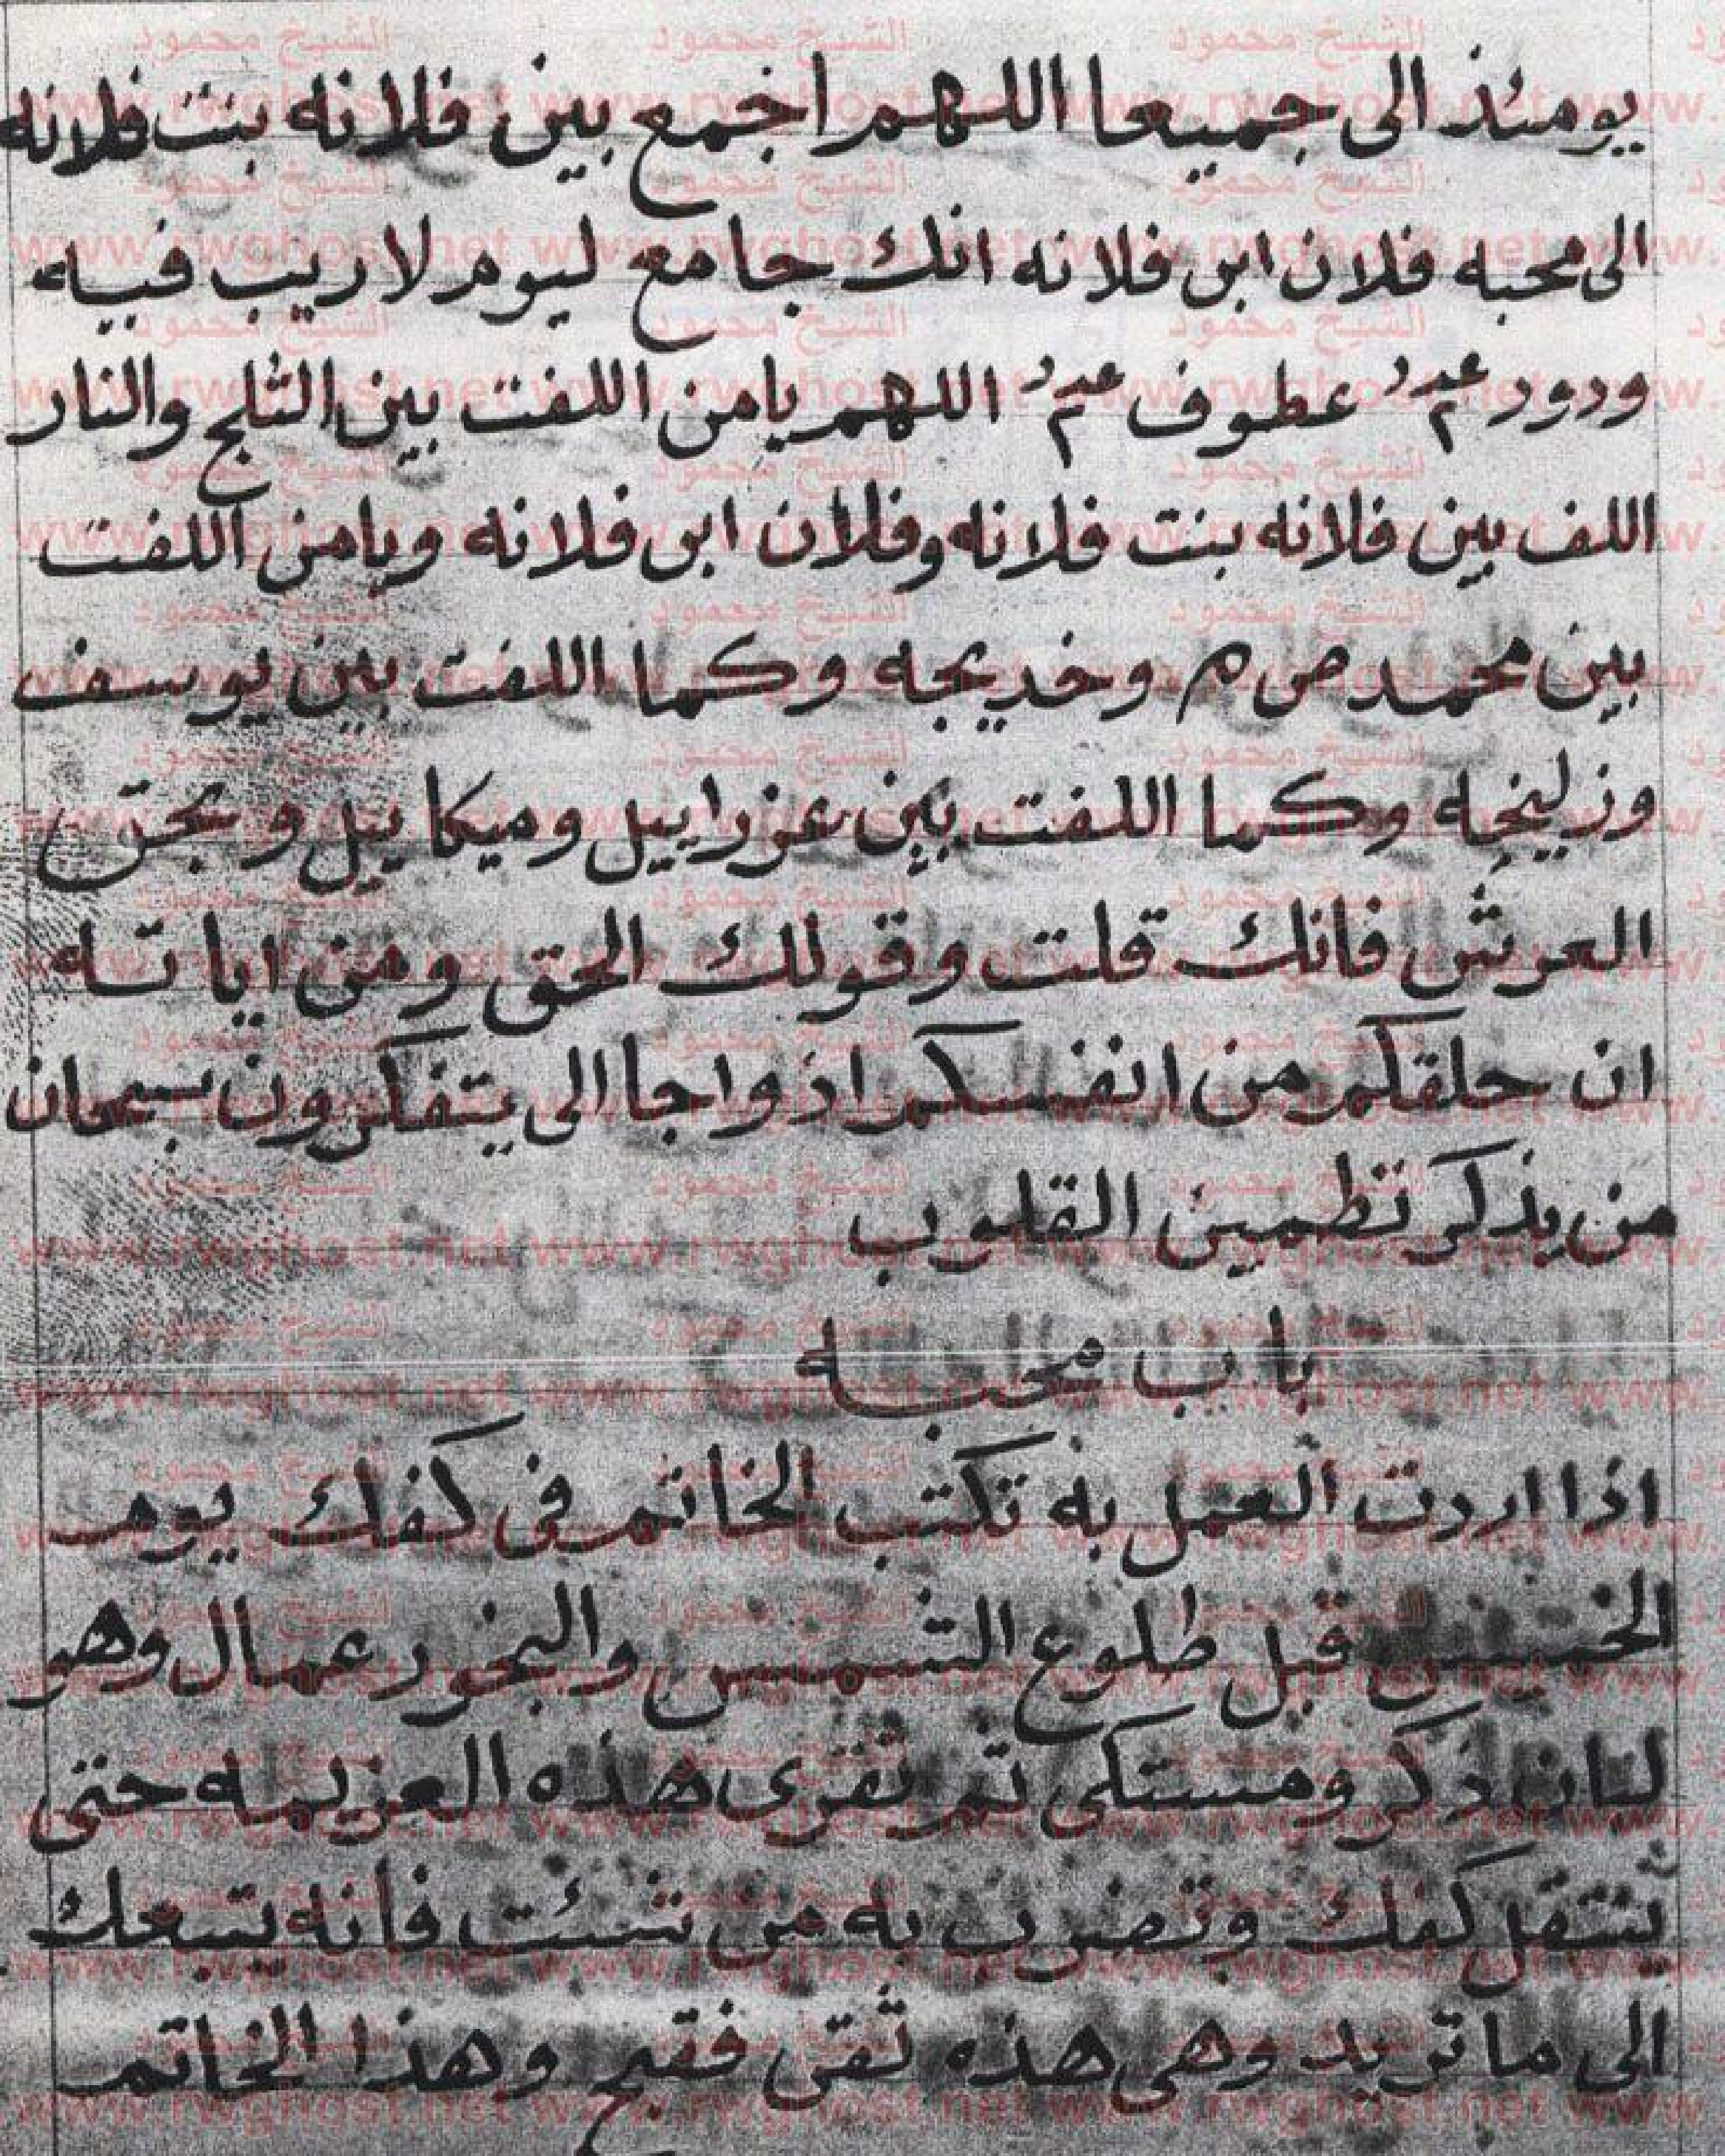 يومئذ الى جميعا اللهم اجمع بين فلانه بنت فلانه
الى محبه فلان ابن فلانه انك جامع ليوم لاريب فيه
ودود عدد عطوف عدد اللهم يامن اللفت بين الثلج والنار
اللف بين فلانه بنت فلانه وفلان ابن فلانه ويامن اللفت
بين محمد ص م وخديجه وكما اللفت بين يوسف
وزليخه وكما اللفت بين عزراييل وميكاييل وبحق
العرش فانك قلت وقولك الحق ومن اياته
ان حلقكم من انفسكم ازواجا الى يتفكرون سبحان
من بذكر تطمين القلوب
باب محبه
اذا اردت العمل به تكتب الخاتم فى كفك يوم
الخميس قبل طلوع الشمس والبخور عمال وهو
لبان ذكر ومستكى ثم تقرى هذه العزيمه حتى
يتقل كفك وتضرب به من شئت فانه يتبعك
الى ما تريد وهى هذه تقى فقبح وهذا الخاتم
الشيخ محمود
www.rwghost.net